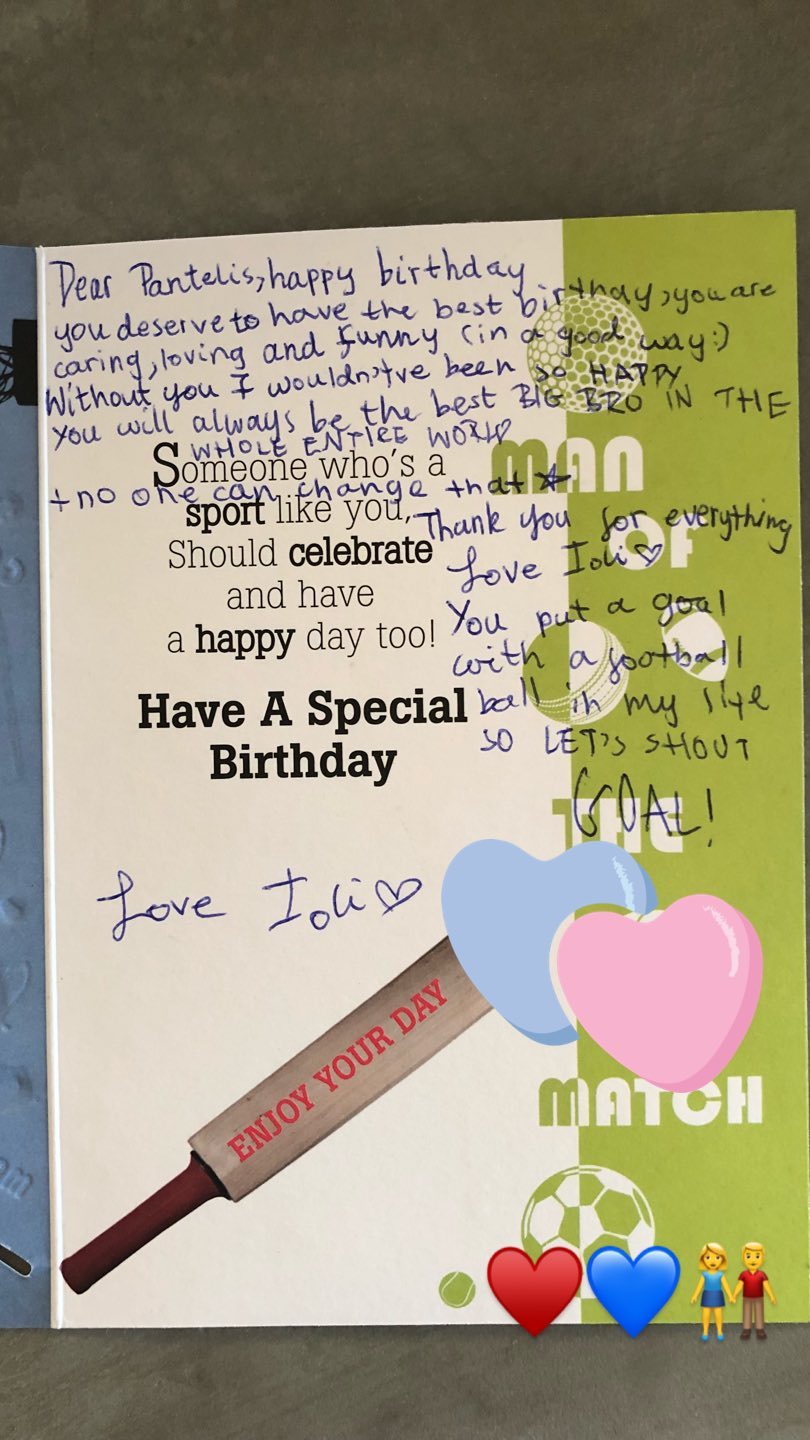 Dear Pantelis, happy birthday
you deserve to have the best birthday, you are
caring, loving and funny (in a good way:)
Without you I wouldn't've been so HAPPY
you will always be the best BIG BRO IN THE
WHOLE ENTIRE WORLD
+ no one can change that
Thank you for everything
Love Ioli
You put a goal
with a football
ball in my life
SO LET'S SHOUT
GOAL!
Someone who's a
sport like you,
Should celebrate
and have
a happy day too!
Have A Special
Birthday
Love Ioli
ENJOY YOUR DAY
MAN
OF
THE
MATCH